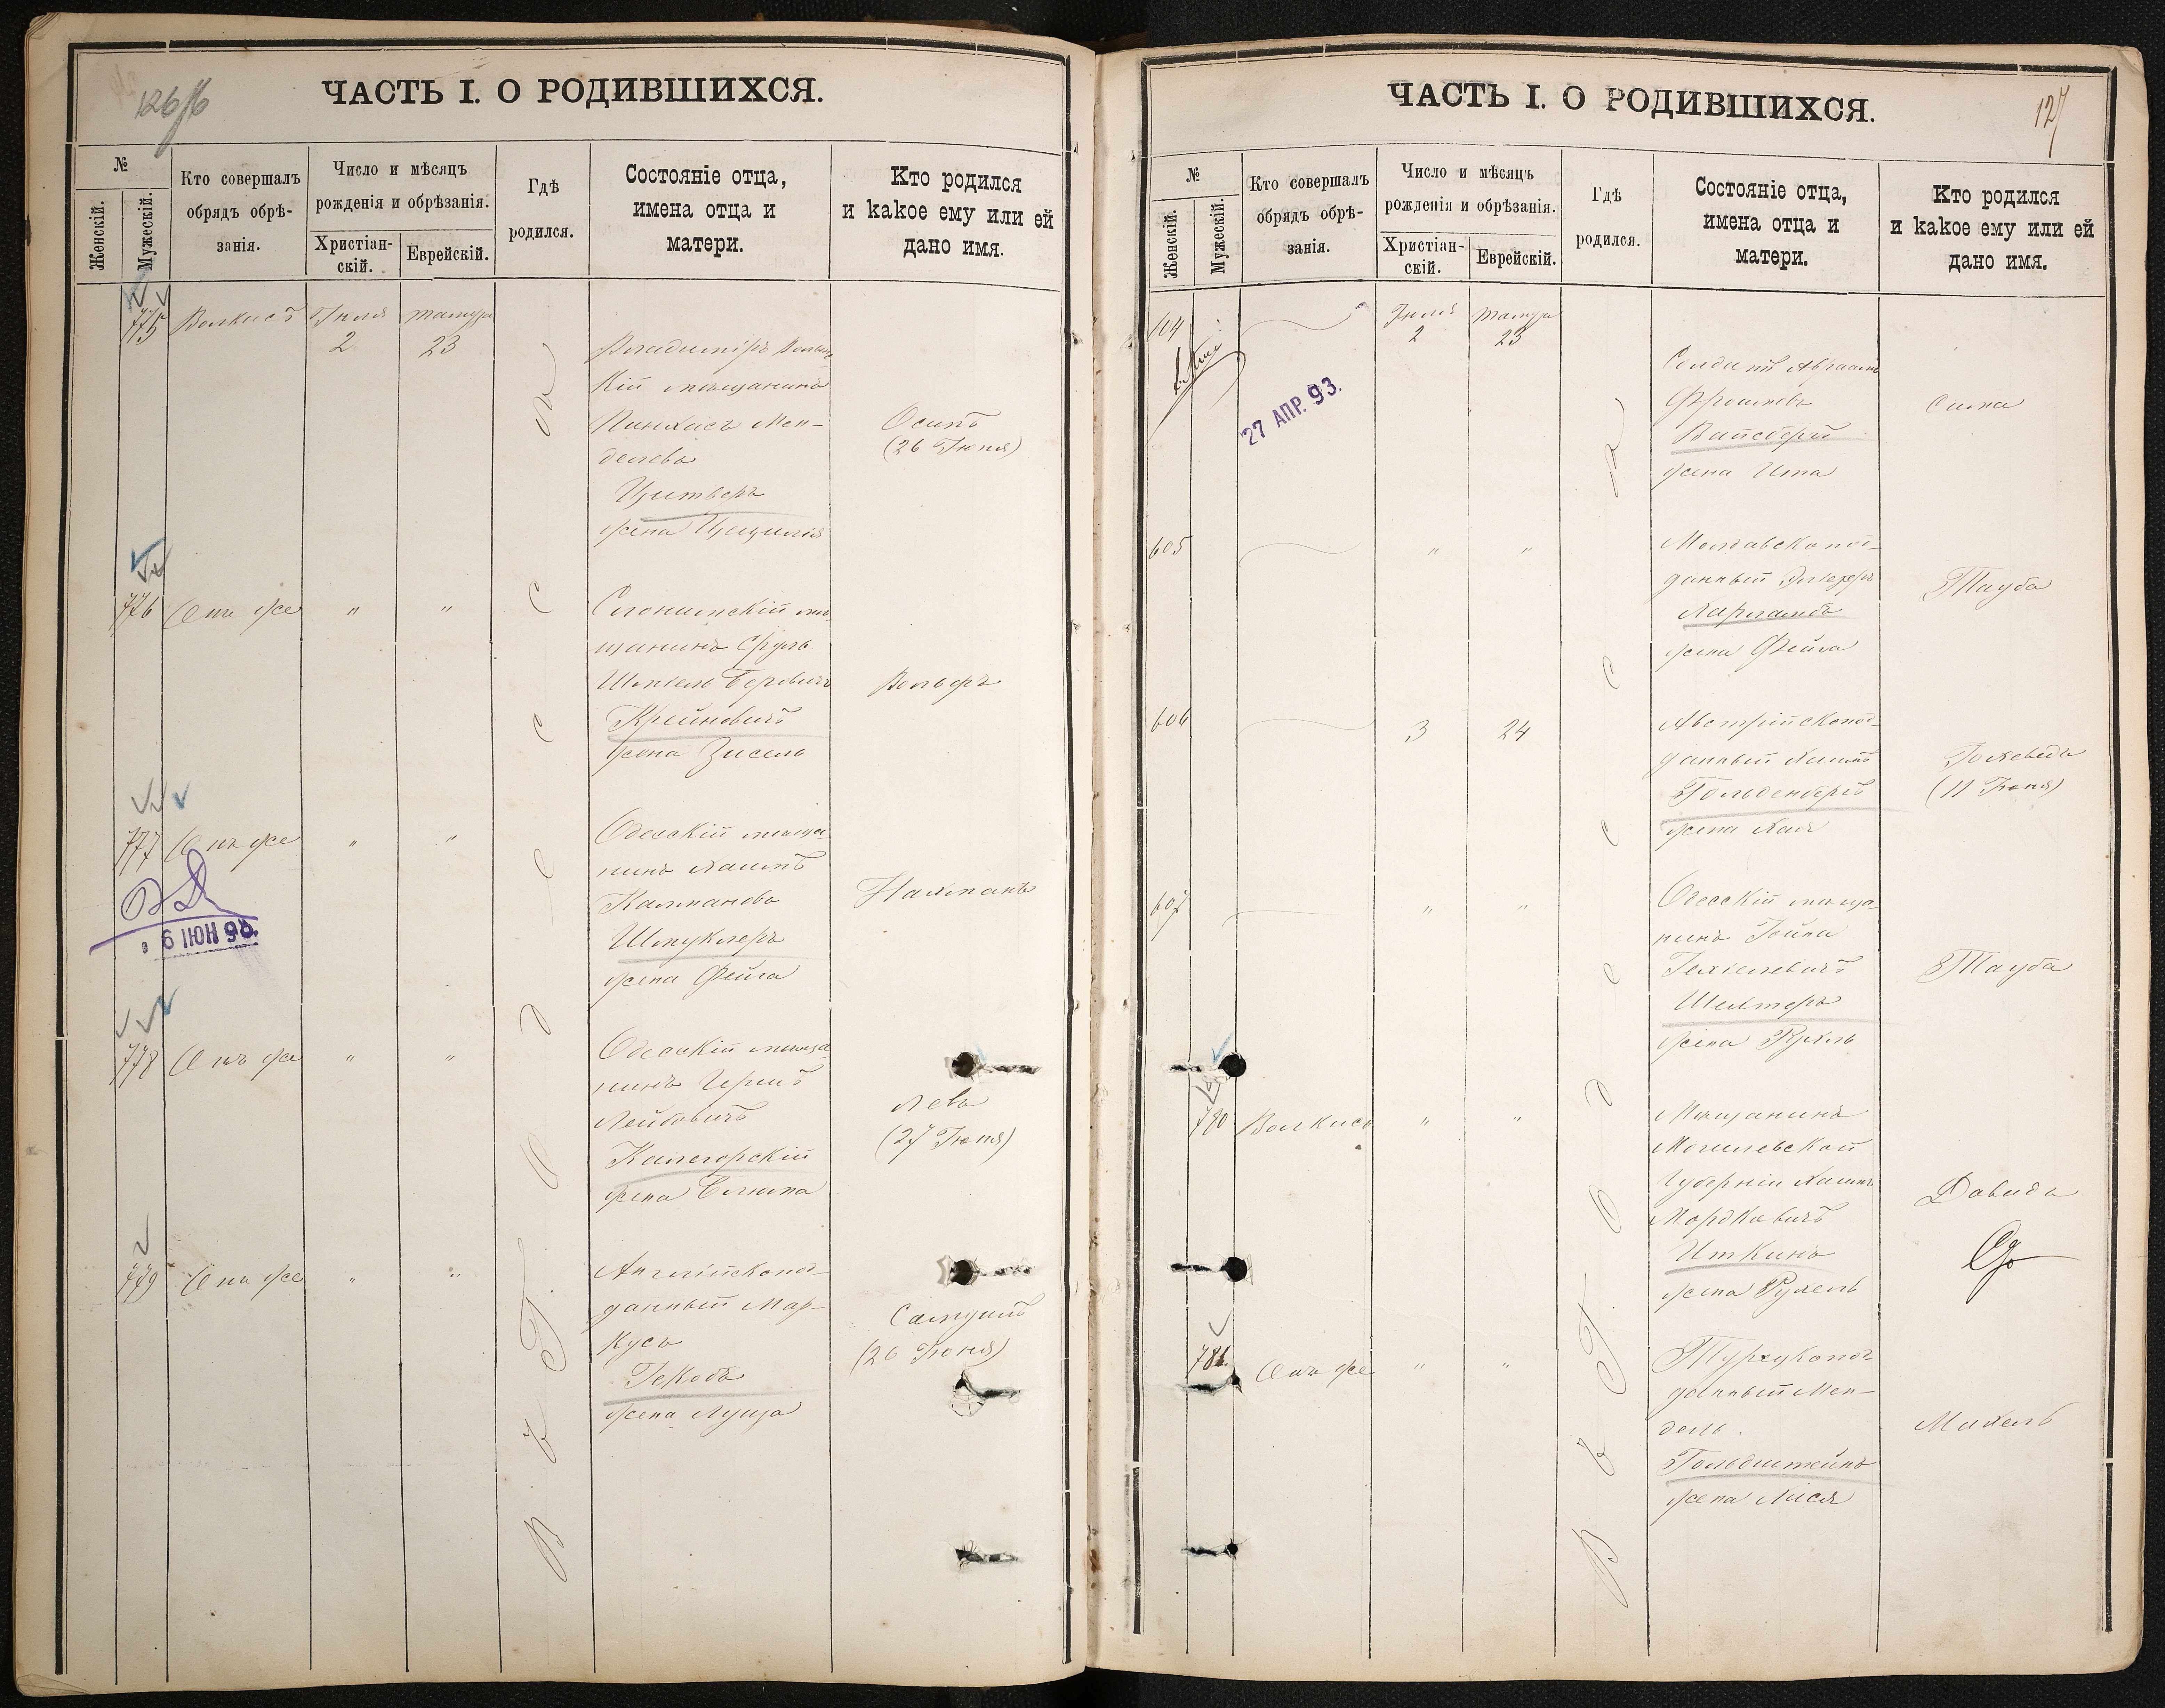 126/б
ЧАСТЬ I. О РОДИВШИХСЯ.
№
Женскій.
Мужескій.
Кто совершалъ
обрядъ обрѣ-
занія.
Число и мѣсяцъ
рожденія и обрѣзанія.
Христіан-
скій.
Еврейскій.
Гдѣ
родился.
Состояніе отца,
имена отца и
матери.
Кто родился
и какое ему или ей
дано имя.
775 Волкисъ Іюля
2
23
Владимиръ Волын-
кій мѣщанинъ
Пинхасъ Мен-
делевъ
Цитверъ
жена Цецилія
Осипъ
(26 Іюня)
776 Онъ же " "
Слонимскій мѣ-
щанинъ Сруль
Шмуель Боровичъ
Крейновичъ
жена Зисель
Вольфъ
777 Онъ же " "
Одесскій мѣща-
нинъ Хаимъ
Калмановъ
Шмуклеръ
жена Фейга
Нахманъ
9 ІЮН 98.
778 Онъ же " "
Одесскій мѣща-
нинъ
Лейбовичъ
Калегорскій
жена
Левъ
(27 Іюня)
779 Онъ же " "
Англійскопод-
данный Мар-
кусъ
Гекобъ
жена Луща
Самуилъ
(26 Іюня)
Въ Г. Одесса
ЧАСТЬ I. О РОДИВШИХСЯ.
127
№
Женскій.
Мужескій.
Кто совершалъ
обрядъ обрѣ-
занія.
Число и мѣсяцъ
рожденія и обрѣзанія.
Христіан-
скій.
Еврейскій.
Гдѣ
родился.
Состояніе отца,
имена отца и
матери.
Кто родился
и какое ему или ей
дано имя.
604 Іюля
2
23
27 АПР. 93.
Солдатъ Авраамъ
Фроимовъ
Вайсбергъ
жена Ита
Сима
605 " "
Молдавскопод-
данный
жена Фейга
Тауба
606 3 24
Австрійскопод-
данный Хаимъ
Гольденбергъ
жена Хая
(11 Іюня)
607 " "
Одесскій мѣща-
нинъ Гойна
Іехіелевичъ
Шехтеръ
жена
Тауба
780 Волкисъ " "
Мѣщанинъ
Могилевской
Губерніи Хаимъ
Мордковичъ
Иткинъ
жена Рухель
Давидъ
781 Онъ же " "
Турецкопод-
данный Мен-
дель
Гольдштейнъ
жена Лися
Михель
Въ Г. Одесса